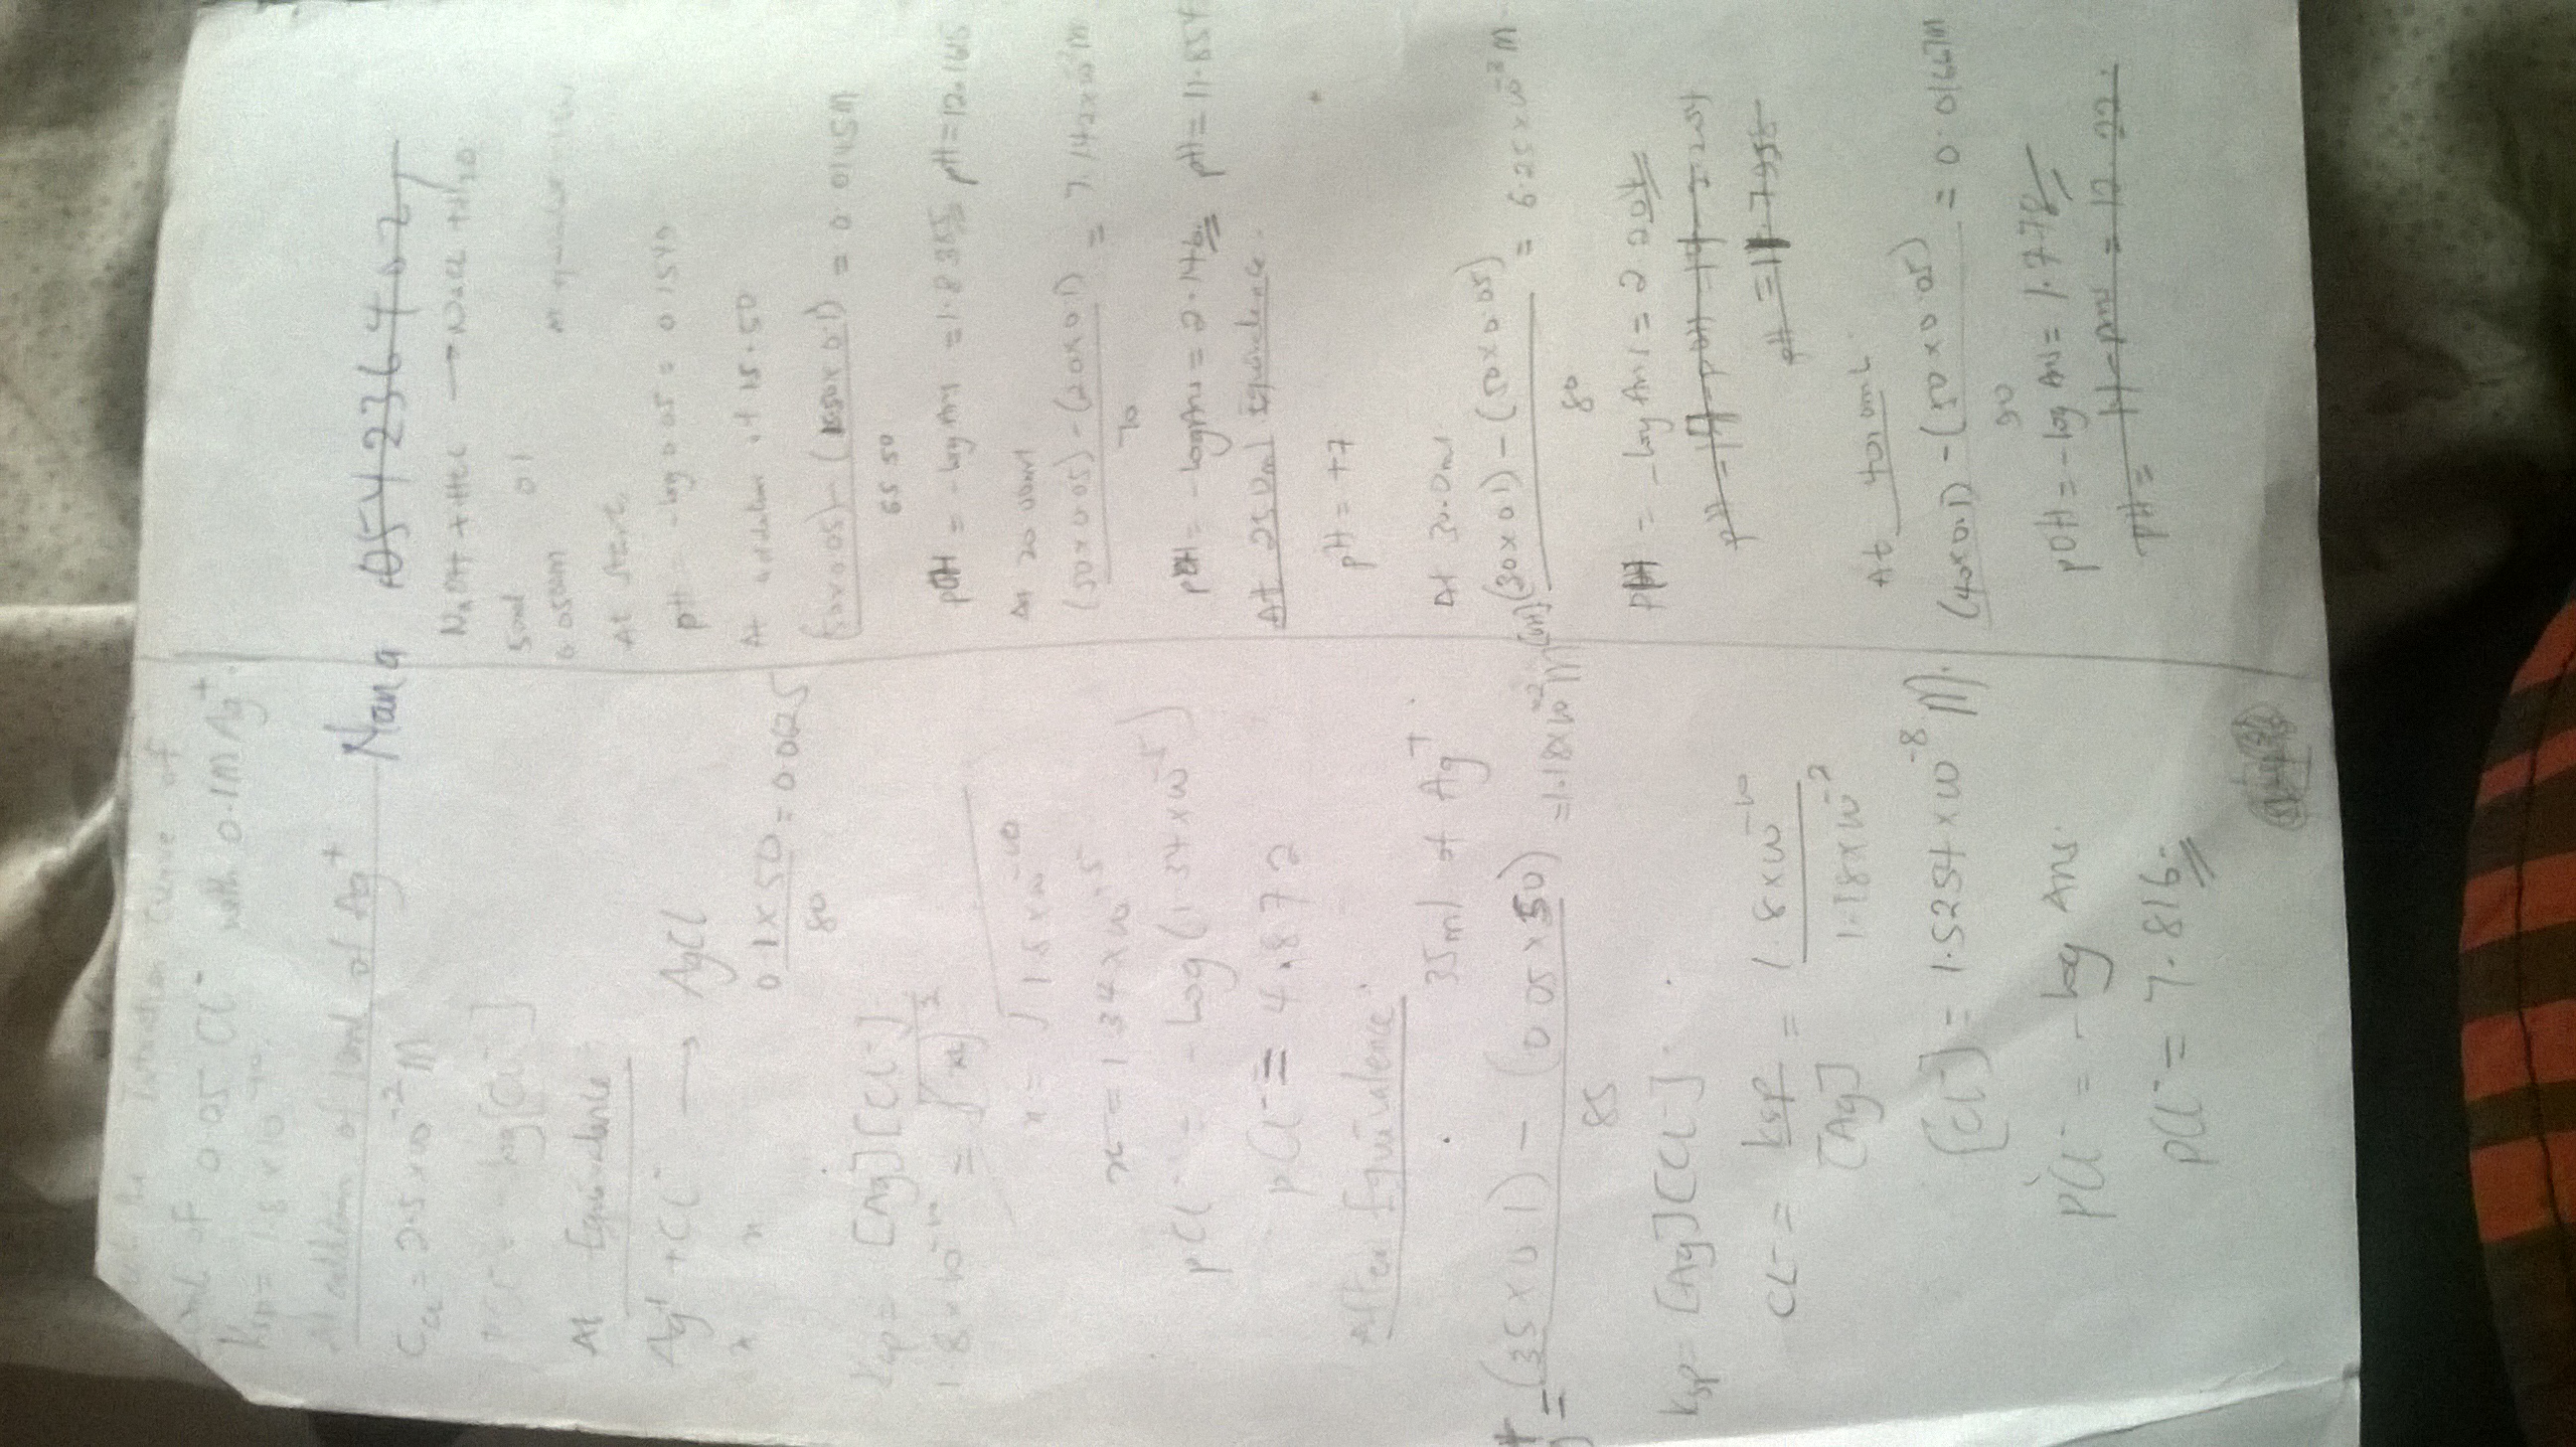 Titration curve of
of 0.05 Cl⁻ with 0.1M Ag⁺.
Ksp = 1.8 x 10⁻¹⁰
addition of 10ml of Ag⁺
= 2.5 x 10⁻² M
- log[Cl⁻]
At Equivalence
Ag⁺ + Cl⁻ → AgCl
x x
0.1 x 50 = 0.0625
80
Ksp = [Ag][Cl⁻]
1.8 x 10⁻¹⁰ =
x = √1.8 x 10⁻¹⁰
x = 1.34 x 10⁻⁵
pCl⁻ = - log (1.34 x 10⁻⁵)
pCl⁻ = 4.872
After Equivalence
35ml of Ag⁺
= (35 x 0.1) - (0.05 x 50) = 1.18 x 10⁻² M
85
Ksp = [Ag][Cl⁻].
Cl⁻ = Ksp = 1.8 x 10⁻¹⁰
[Ag] 1.18 x 10⁻²
[Cl⁻] = 1.5254 x 10⁻⁸ M.
pCl⁻ = - log Ans.
pCl⁻ = 7.816.
Nana 0541236407
NaOH + HCl → NaCl + H₂O
50ml 0.1
0.050M
At start
pH = - log 0.05 =
At addition of 15.50
(50 x 0.05) - (15.50 x 0.1) = 0.0145M
65.50
pOH = - log Ans = 1.8385 pH = 12.1615
At 20.00ml
(50 x 0.05) - (20 x 0.1) = 7.143 x 10⁻³ M
70
pOH = - log Ans = 2.146 pH = 11.854
At 25.0ml Equivalence.
pH = +7
At 30.0ml
(30 x 0.1) - (50 x 0.05) = 6.25 x 10⁻³ M
80
pH = - log Ans = 2.204
pH = 14 - pOH = 14 - 2.204
pH = 11.7958
At 40.0mL
(40 x 0.1) - (50 x 0.05) = 0.01667M
90
pOH = - log Ans = 1.778
pH = 14 - Ans = 12.22.